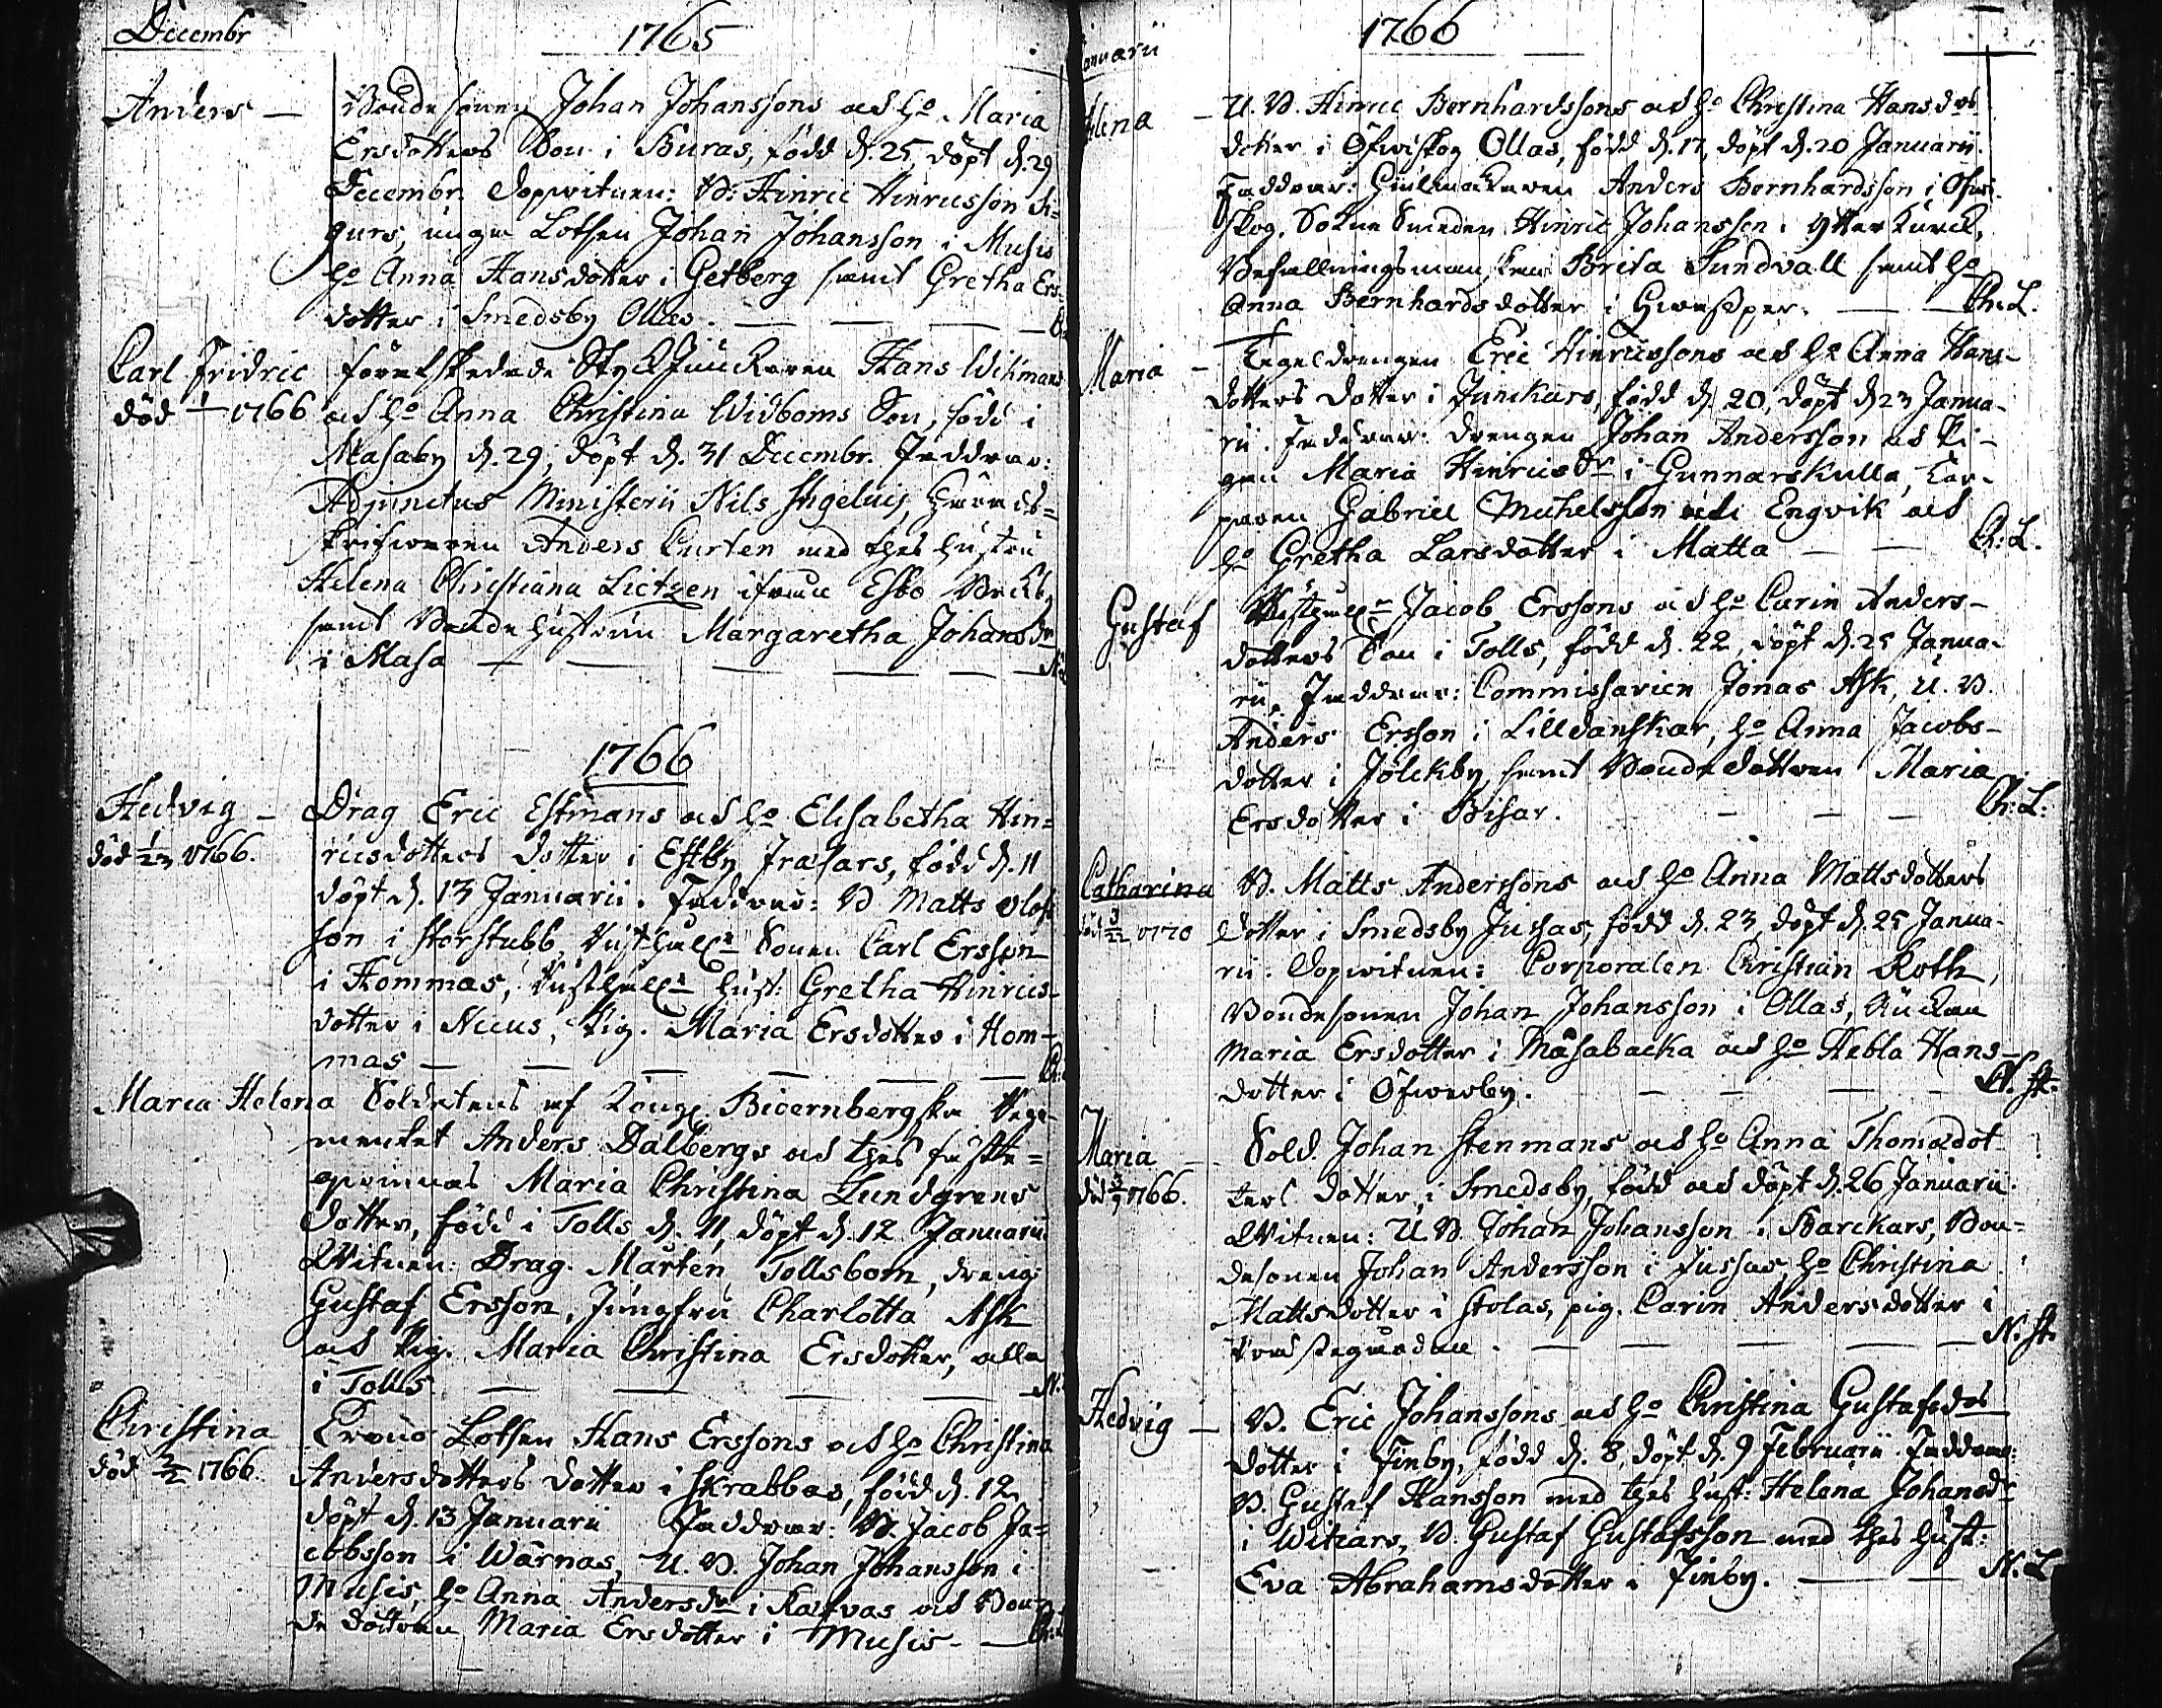 Decembr
1765
Anders —
Bondesonen Johan Johanssons och ho Maria
Ersdotters Son i Buras, född d. 25, döpt d. 29
Decembr. Dopwitnen: B: Hinric Hinricsson
gurs, unga Lotsen Johan Johansson i Musis
ho Anna Hansdotter i Getberg samt Gretha Ers-
dotter i Smedsby Ollas. — — — —
Carl Fridric
död 1766
förafskedade Styckjunckaren Hans Wikmans
och ho Anna Christina Widboms Son, född i
Masaby d. 29, döpt d. 31 Decembr. Faddrar:
Adjunctus Ministerii Nils, Härads-
skrifwaren Anders Curten med thes hustru
Helena Christiana Lictzen ifrån Esbo
samt Bonde hustrun Margaretha Johansdr
i Masa — — — — — N:
1766
Hedvig —
död 1/23 1766.
Drag Eric Estmans och ho Elisabetha Hin=
ricsdotters dotter i Estby Irasars, född d. 11
döpt d. 13 Januarii. Faddrar: B Matts Olofs
son i Storstubb, Rusthåll: Sonen Carl Ersson
i Hommas, Rusthåll: hust: Gretha Hinrics-
dotter i Neeus, Pig. Maria Ersdotter i Hom-
mas — — — — — — Ch:
Maria Helena
Soldatens af Kongl. Bioernbergska Rege-
mentet Anders Dalbergs och thes fäste=
qvinnas Maria Christina Lundgrens
dotter, född i Tolls d. 11, döpt d. 12 Januarii
Witnen: Drag. Mårten Tollsbom, dreng
Gustaf Ersson, Jungfru Charlotta Ask
och Pig. Maria Christina Ersdotter, alla
i Tolls — — — — N.
Christina
död 2/2 1766.
Crono Lotsen Hans Erssons och ho Christina
Andersdotters dotter i Skrabbas, född d. 12
döpt d. 13 Januarii Faddrar: B. Jacob Ja=
cobsson i Wärnas, U. B. Johan Johansson i
Musis, ho Anna Andersdr i Rafvas och Bon=
de dottren Maria Ersdotter i Musis. — Ch:L
Januarii
1766
Helena
U. B. Hinric Bernhardssons och ho Christina Hansdrs
dotter i Öfwiskog Ollas, född d. 17, döpt d. 20 Januarii.
Faddrar: Hiulmakaren Anders Bernhardsson i Öfwi
skog, Sokne Smeden Hinric Johansson i Ytterkurck,
Befallningsmanskan Brita Sundvall samt ho
Anna Bernhardsdotter i — — Ch:L.
Maria —
Tegeldrengen Eric Hinricssons och ho Anna Hans-
dotters dotter i Junckars, född d. 20, döpt d 23 Janua-
rii. Faddrar: drengen Johan Andersson och Pi-
gan Maria Hinricsdr i Gunnarskulla, Tor-
paren Gabriel Michelsson vid Engvik och
ho Gretha Larsdotter i Matta — — Ch:L.
Gustaf
Rusthåll: Jacob Erssons och ho Carin Anders-
dotters Son i Tolls, född d. 22, döpt d. 25 Janua-
rii, Faddrar: Commissarien Jonas Ask, U. B.
Anders Ersson i Lilldanskar, ho Anna Jacobs-
dotter i Jölckby, samt Bondedottren Maria
Ersdotter i Bisar. — — — Ch:L:
Catharina
död 3/22 1770
B. Matts Anderssons och ho Anna Mattsdotters
dotter i Smedsby Jussas, född d. 23, döpt d. 25 Janua-
rii. Dopwitnen: Corporalen Christian Roth,
Bondesonen Johan Johansson i Ollas, Änckan
Maria Ersdotter i Måsabacka och ho Hebla Hans-
dotter i Öfwerby. — — — N. St.
Maria —
död 3/7 1766.
Sold. Johan Stenmans och ho Anna Thomædot
ters dotter i Smedsby, född och döpt d. 26 Januarii.
Witnen: U B. Johan Johansson i Barckars, Bon=
desonen Johan Andersson i Jussas, ho Christina
Mattsdotter i Stolas, pig. Carin Andersdotter i
— — — — N. St.
Hedvig —
B. Eric Johanssons och ho Christina Gustafsdrs
dotter i Finby, född d. 8, döpt d. 9 Februarii. Faddrar:
B. Gustaf Hansson med thes hust: Helena Johansdr
i Witzars, B. Gustaf Gustafsson med thes hust:
Eva Abrahamsdotter i Finby. — — N. L